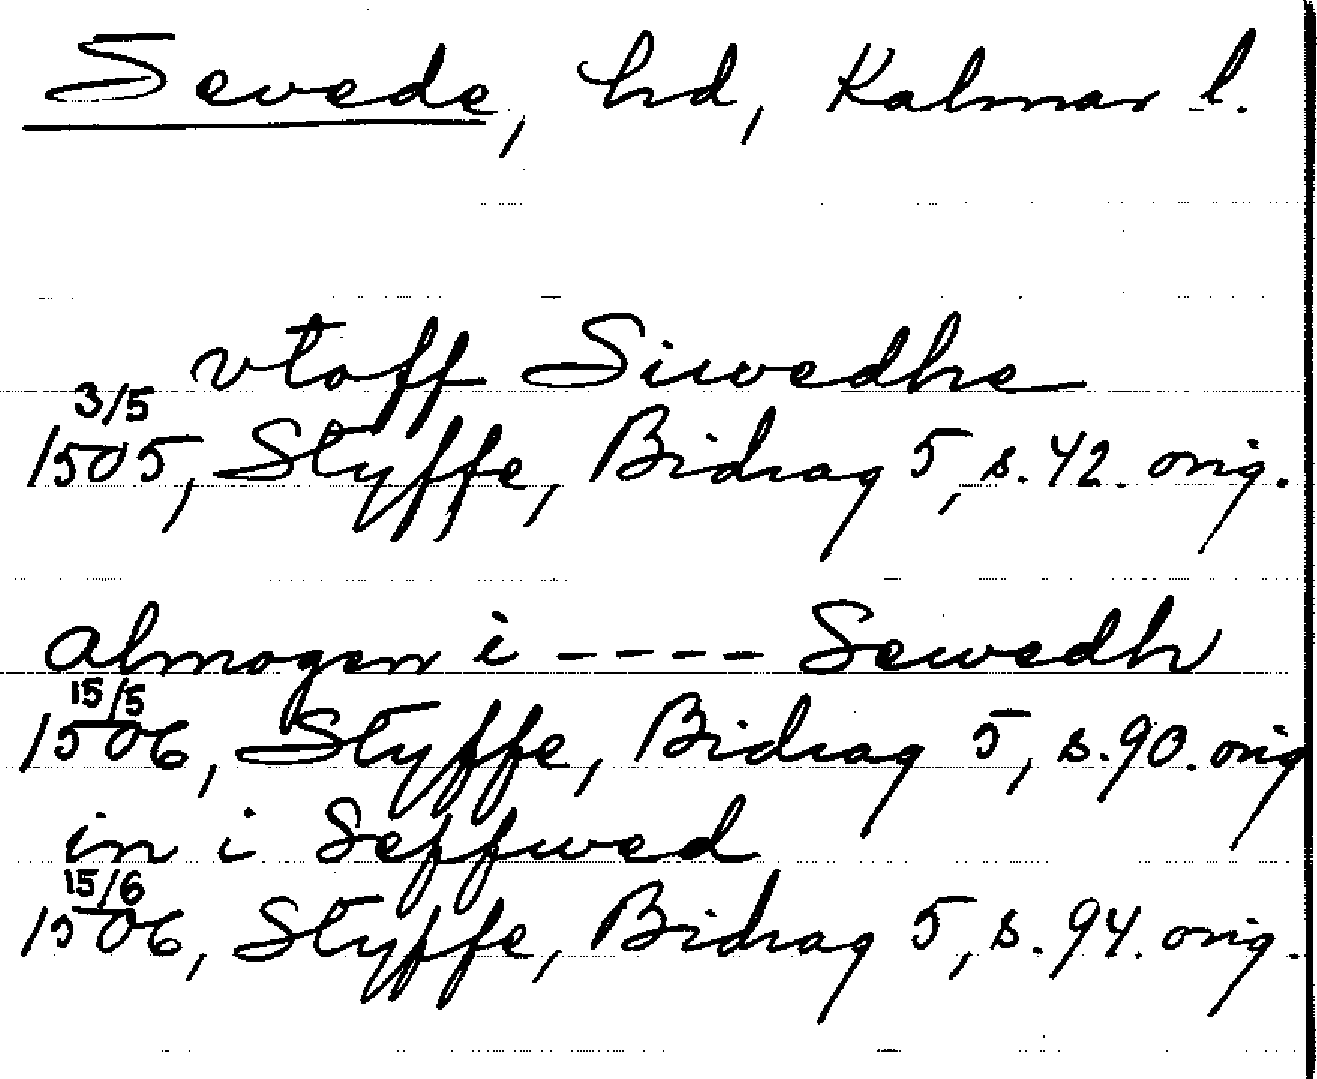 Sevede, hd, Kalmar l.
vtaff Siwedhe
3/5
1505, Styffe, Bidrag 5, s. 42. orig.
almogen i ---- Sewedh
15/5
1506, Styffe, Bidrag 5, s. 90. orig
in i Seffwed
15/6
1506, Styffe, Bidrag 5, s. 94. orig.